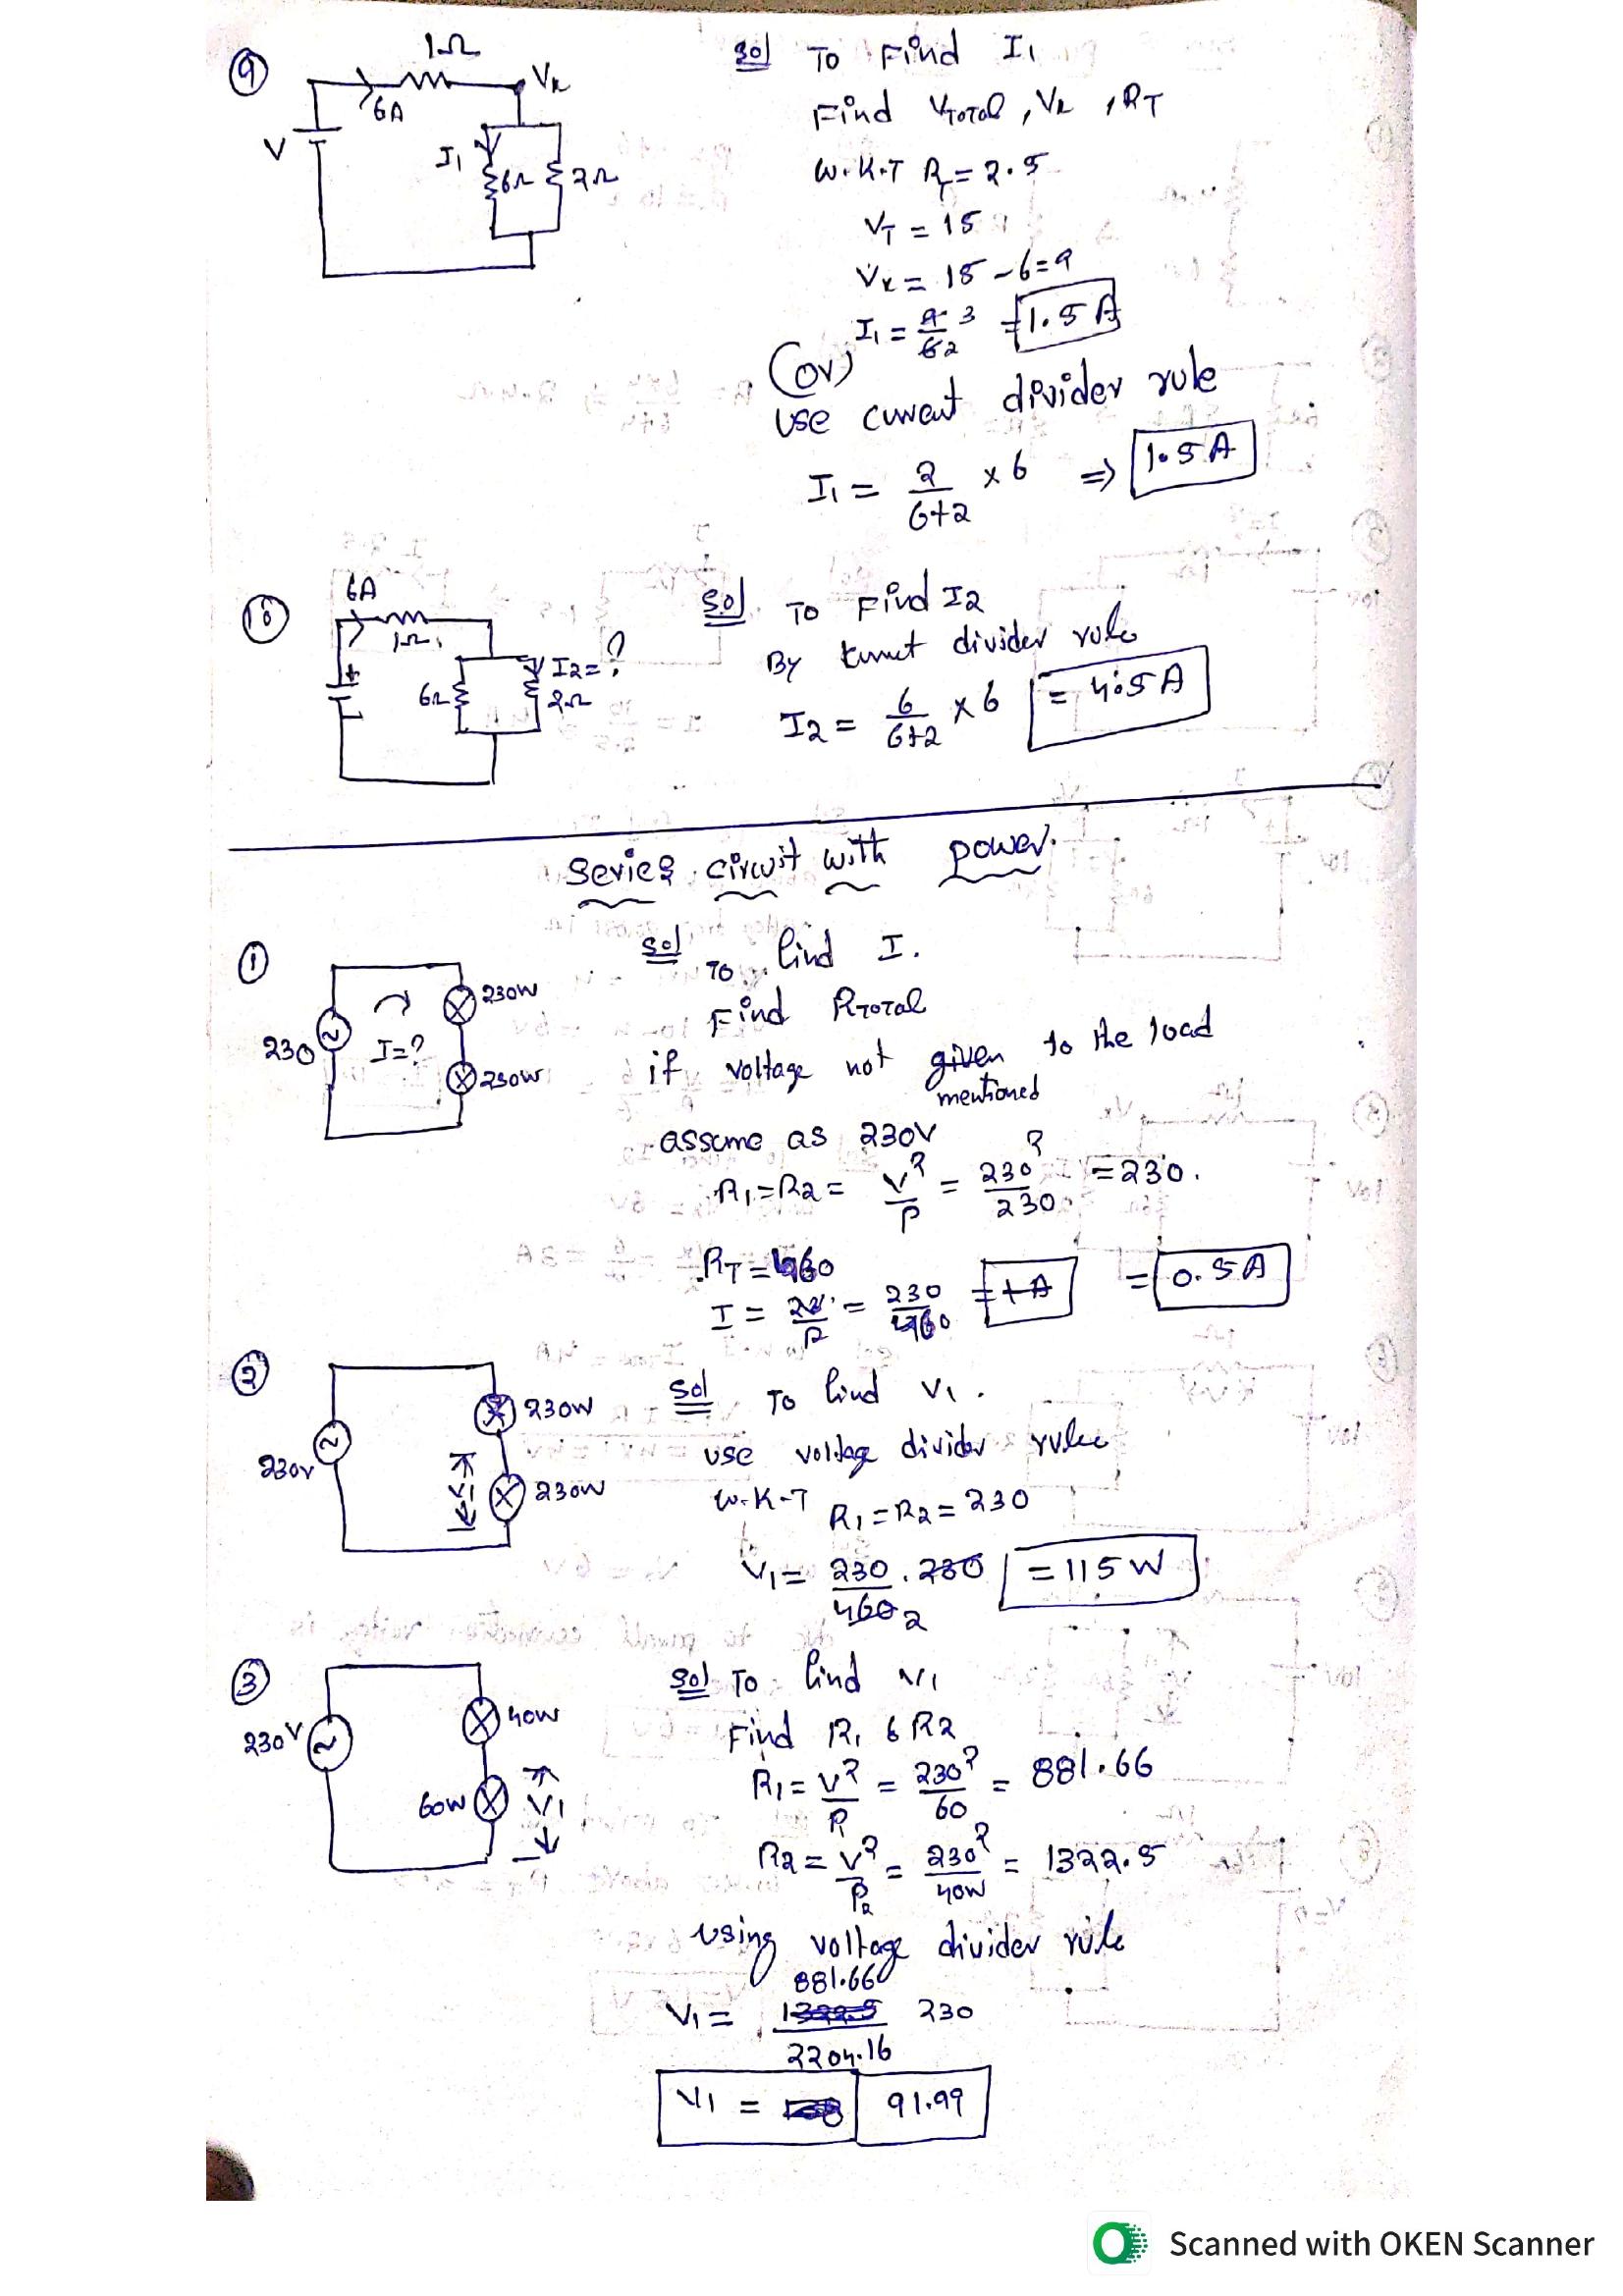 9
1Ω
Vx
6A
V
I1
6Ω
2Ω
Sol To Find I1
Find VTotal, Vx, RT
W.K.T RT = 2.5
VT = 15
Vx = 15 - 6 = 9
I1 = 9/6 3/2 = 1.5 A
(or)
use current divider rule
I1 = 2/(6+2) × 6 ⇒ 1.5 A
10
6A
1Ω
I2 = ?
6Ω
2Ω
Sol To Find I2
By divider rule
I2 = 6/(6+2) × 6 = 4.5 A
Series circuit with power.
1
230
I=?
230W
230W
Sol To find I.
Find RTotal
if voltage not given to the load
mentioned
assume as 230V
R1 = R2 = V²/P = 230²/230 = 230.
RT = 460
I = = 230/460 = 1A = 0.5A
2
230V
230W
V1
230W
Sol To find V1.
use voltage divider rule
W.K.T R1 = R2 = 230
V1 = 230/460 2 . 230 = 115 W
3
230V
40W
60W
V1
Sol To find V1
Find R1 & R2
R1 = V²/P1 = 230²/60 = 881.66
R2 = V²/P2 = 230²/40W = 1322.5
using voltage divider rule
881.66
V1 = 1322.5 230
2204.16
V1 = 91.99
Scanned with OKEN Scanner